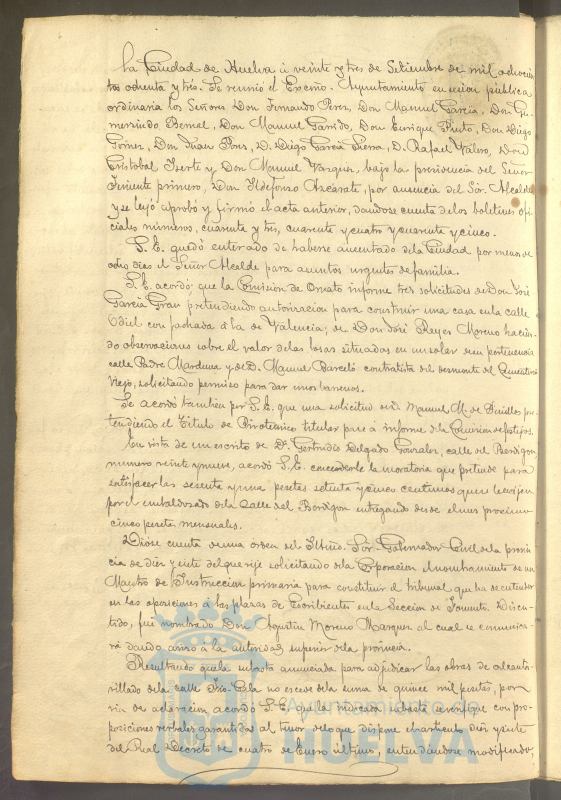 la Ciudad de Huelva á veinte y tres de Setiembre de mil ochocien
tos ochenta y tres. Se reunió el Excmo. Ayuntamiento en sesion pública
ordinaria los Señores Don Fernando Perez, Don Manuel García, Don Gu
mersindo Bernal, Don Manuel Garrido, Don Enrique Pinto, Don Diego
Gomez, Don Juan Pons, D. Diego García Sierra, D. Rafael Valero, Don
Cristobal Iserte y Don Manuel Vazquez, bajo la presidencia del Señor
Teniente primero, Don Ildefonso Azcárate, por ausencia del Sór. Alcalde
y se leyó aprobó y firmó el acta anterior, dandose cuenta de los boletines ofi
ciales números, cuarenta y tres, cuarenta y cuatro y cuarenta y cinco.
S. E. quedó enterado de haberse ausentado de la Ciudad por menos de
ocho dias el Señor Alcalde para asuntos urgentes de familia.
S. E. acordó que la Comision de Ornato informe tres solicitudes de Don José
García Grau pretendiendo autorizacion para construir una casa en la calle
Odiel con fachada á la de Valencia; de Don José Reyes Moreno hacien
do observaciones sobre el valor de las losas situadas en un solar de su pertenencia
calle Padre Marchena y de D. Manuel Barceló contratista del desmonte del Cementerio
Viejo, solicitando permiso para dar unos barrenos.
Se acordó tambien por S. E. que una solicitud de D. Manuel M. de pre
tendiendo el Título de Pirotécnico titular pase á informe de la Comision de festejos.
En vista de un escrito de Dª. Gertrudis Delgado Gonzalez, calle del Berdigon
número veinte y nueve, acordó S. E. concederle la moratoria que pretende para
satisfacer las sesenta y una pesetas setenta y cinco centimos que se le exijen
por el embaldosado de la Calle del Berdigon entregando desde el mes proximo
cinco pesetas mensuales.
Dióse cuenta de una orden del Iltmo. Sór. Gobernador Civil de la provin
cia de diez y siete del que rije solicitando de la Corporacion el nombramiento de un
Maestro de Instruccion primaria para constituir el tribunal que ha de entender
en las oposiciones á las plazas de Escribientes en la Seccion de Fomento. Discu
tido, fué nombrado Don Agustin Moreno Marquez al cual se comunica
rá dando aviso á la autoridad superior de la provincia.
Resultando que la subasta anunciada para adjudicar las obras de alcanta
rillado de la calle no escede de la suma de quince mil pesetas, por
via de aclaracion acordó S. E. que la indicada subasta sea con pro
posiciones verbales garantidas al tenor de lo que dispone el artículo diez y siete
del Real Decreto de cuatro de Enero último, entendiendose modificado,
Ayuntamiento de
HUELVA